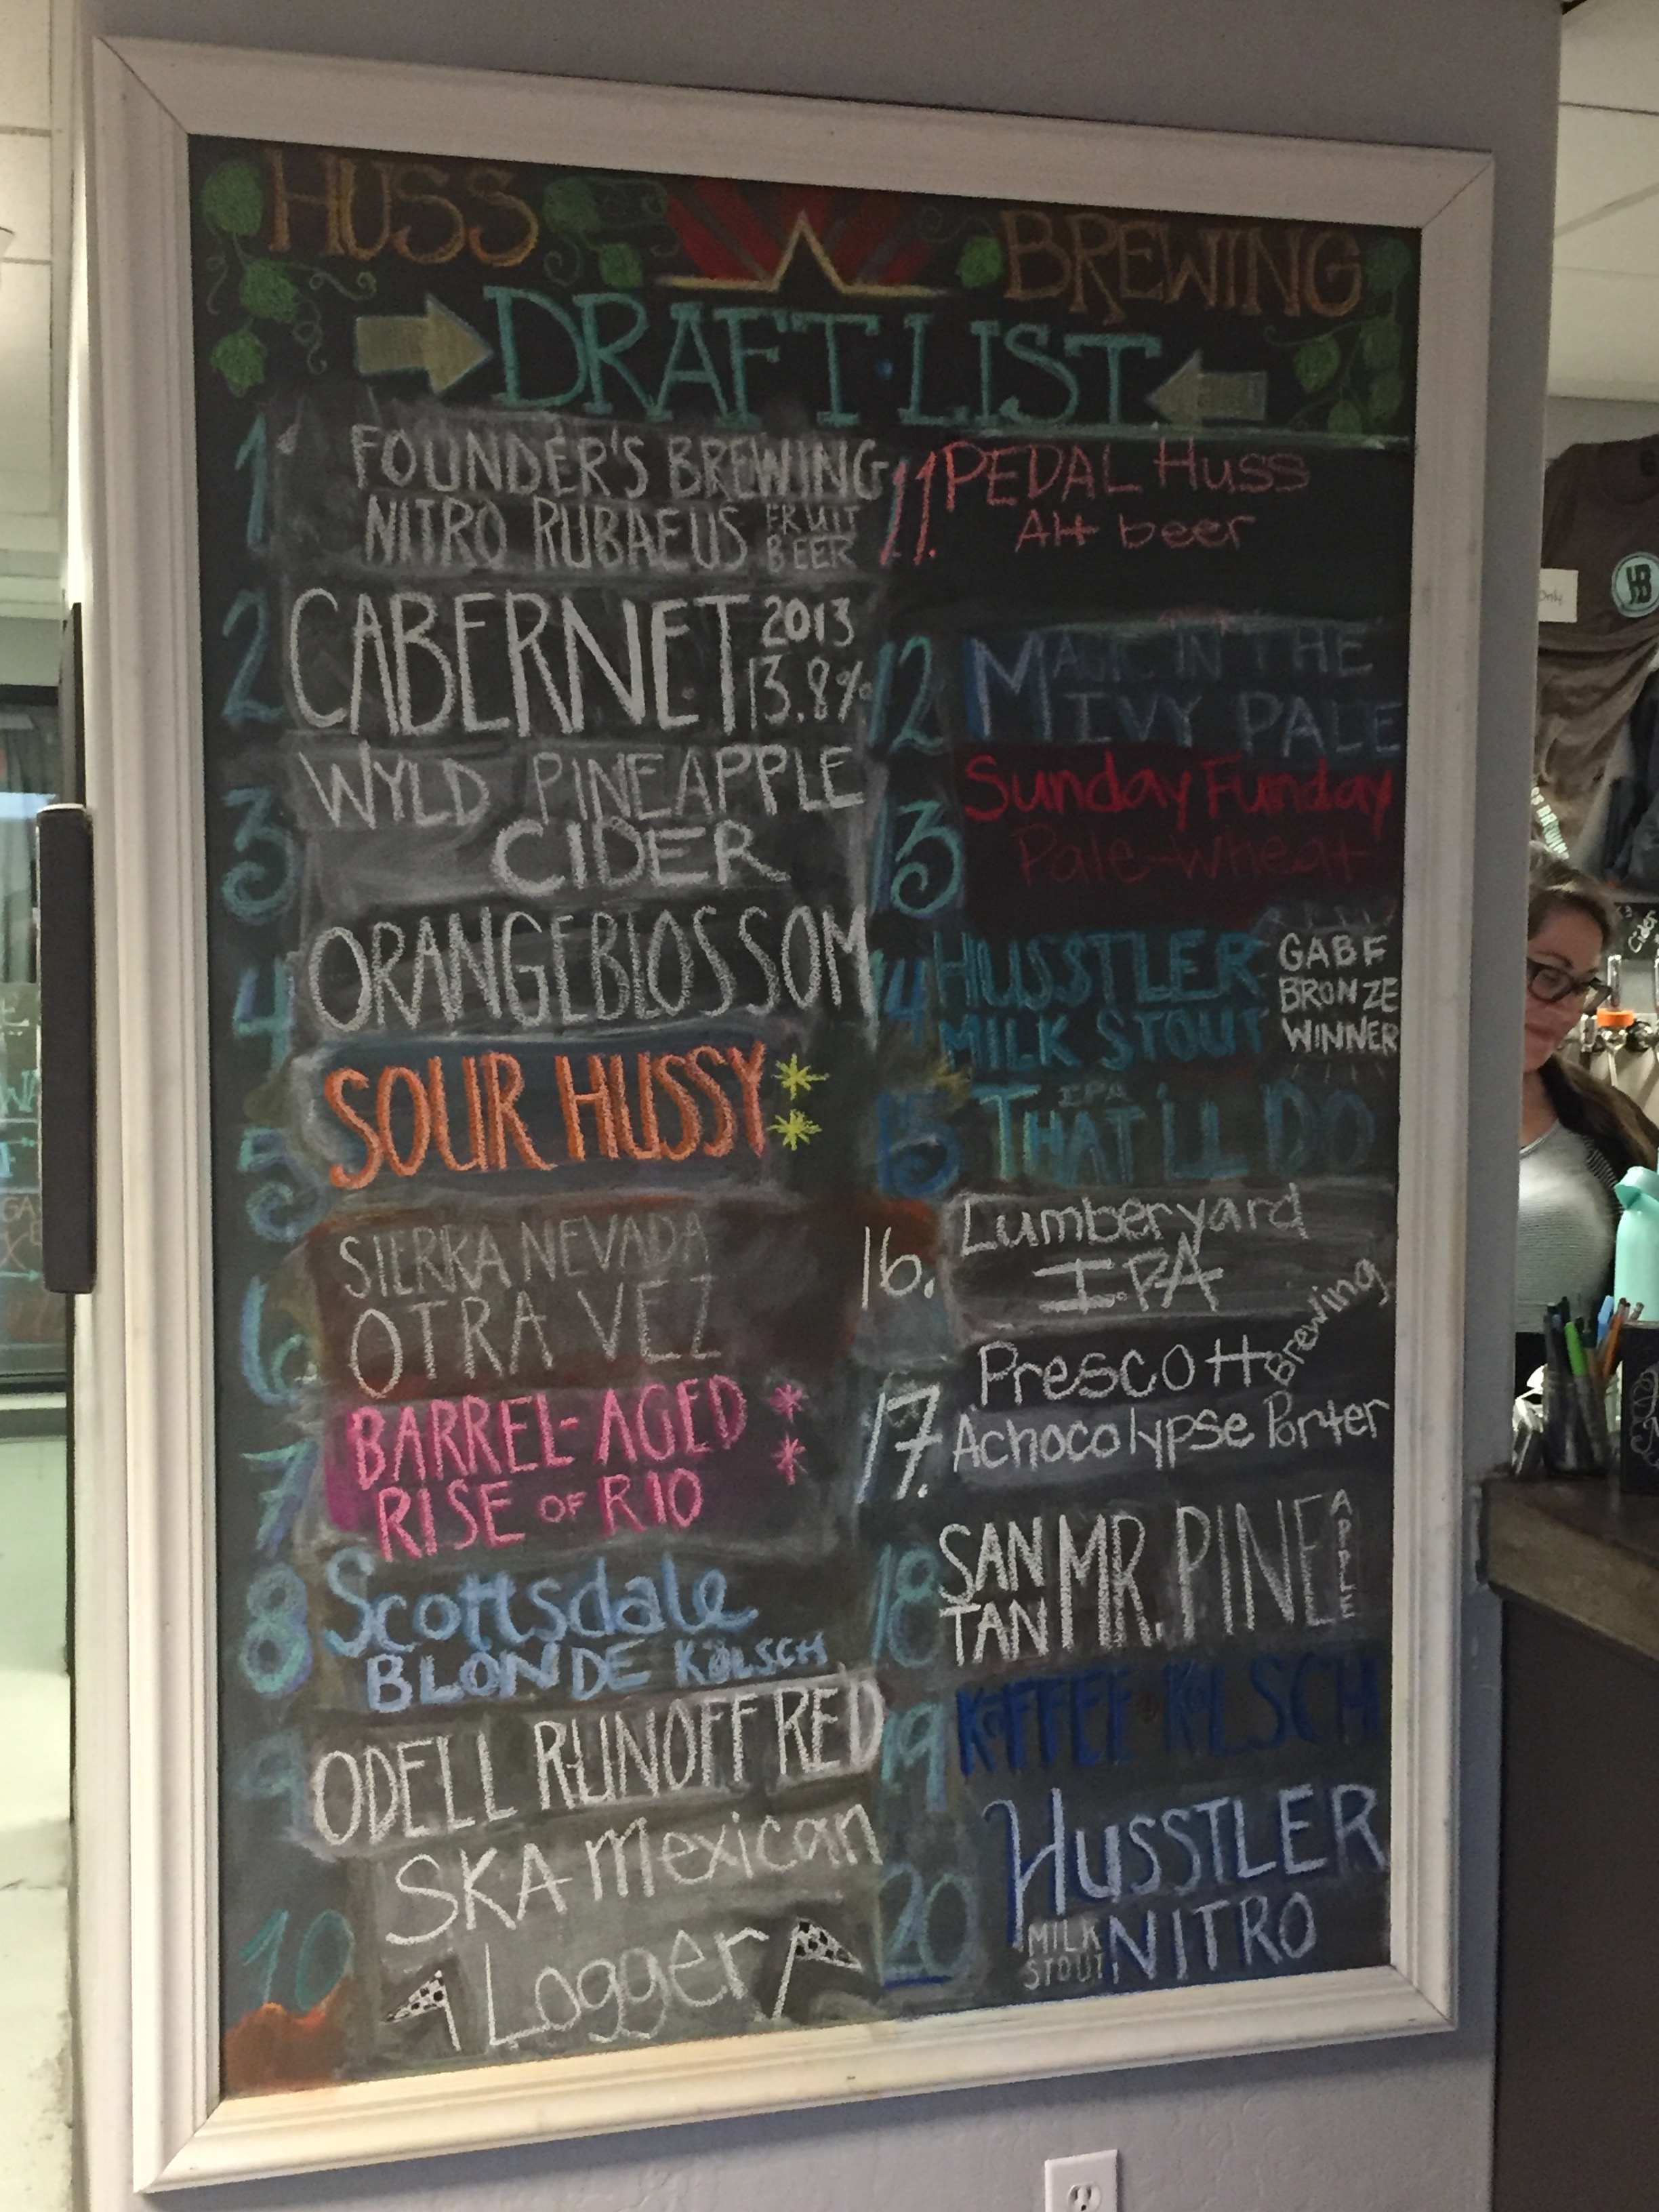 HUSS BREWING
DRAFT·LIST
1 FOUNDER'S BREWING
NITRO RUBAEUS FRUIT BEER
2 CABERNET 2013 13.8%
3 WYLD PINEAPPLE
CIDER
4 ORANGEBLOSSOM
5 SOUR HUSSY **
6 SIERRA NEVADA
OTRA VEZ
7 BARREL-AGED *
RISE OF RIO *
8 Scottsdale
BLONDE KÖLSCH
9 ODELL RUNOFF RED
10 SKA Mexican
Logger
11. PEDAL Huss
Alt beer
12 MAGIC IN THE
IVY PALE
13 Sunday Funday
Pale-Wheat
14 HUSSTLER
MILK STOUT
GABF
BRONZE
WINNER
15 IPA
THAT'LL DO
16. Lumberyard
IPA
17. Prescott Brewing
Achocolypse Porter
18 SAN TAN MR. PINEAPPLE
19 KAFFEE KOLSCH
20 HUSSTLER
MILK STOUT NITRO
HB